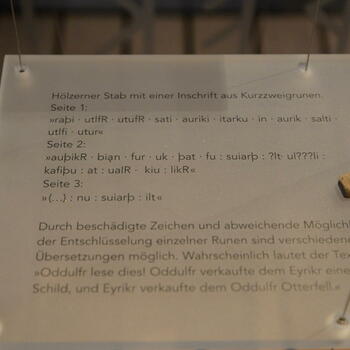 Hölzerner Stab mit einer Inschrift aus Kurzzweigrunen.
Seite 1:
»raþi · utlfR · utufR · sati · auriki · itarku · in · aurik · salti ·
utlfi · utur«
Seite 2:
»auþikR · biąn · fur · uk · þat · fu : suiarþ : ?lt· ul???li :
kafiþu : at : ualR · kiu : likR«
Seite 3:
»(...) : nu : suiarþ : ilt«
Durch beschädigte Zeichen und abweichende Möglich
der Entschlüsselung einzelner Runen sind verschiedene
Übersetzungen möglich. Wahrscheinlich lautet der Tex
»Oddulfr lese dies! Oddulfr verkaufte dem Eyrikr eine
Schild, und Eyrikr verkaufte dem Oddulfr Otterfell.«